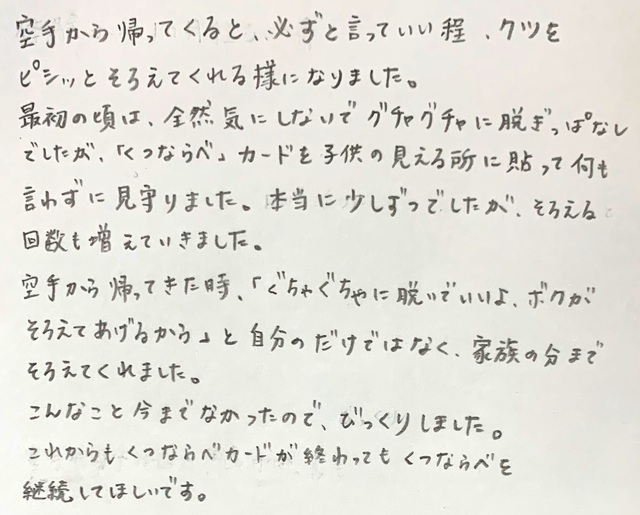 空手から帰ってくると、必ずと言っていい程、クツを
ピシッとそろえてくれる様になりました。
最初の頃は、全然気にしないでグチャグチャに脱ぎっぱなし
でしたが、「くつならべ」カードを子供の見える所に貼って何も
言わずに見守りました。本当に少しずつでしたが、そろえる
回数も増えていきました。
空手から帰ってきた時、「ぐちゃぐちゃに脱いでいいよ、ボクが
そろえてあげるから」と自分のだけではなく、家族の分まで
そろえてくれました。
こんなこと今までなかったので、びっくりしました。
これからもくつならべカードが終わってもくつならべを
継続してほしいです。